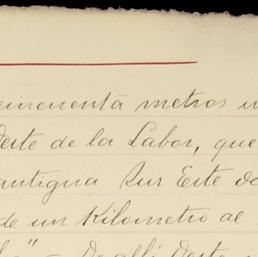 cincuenta metros
Oeste de la Labor, que
antigua Sur Este
de un Kilometro al
De alli Oeste